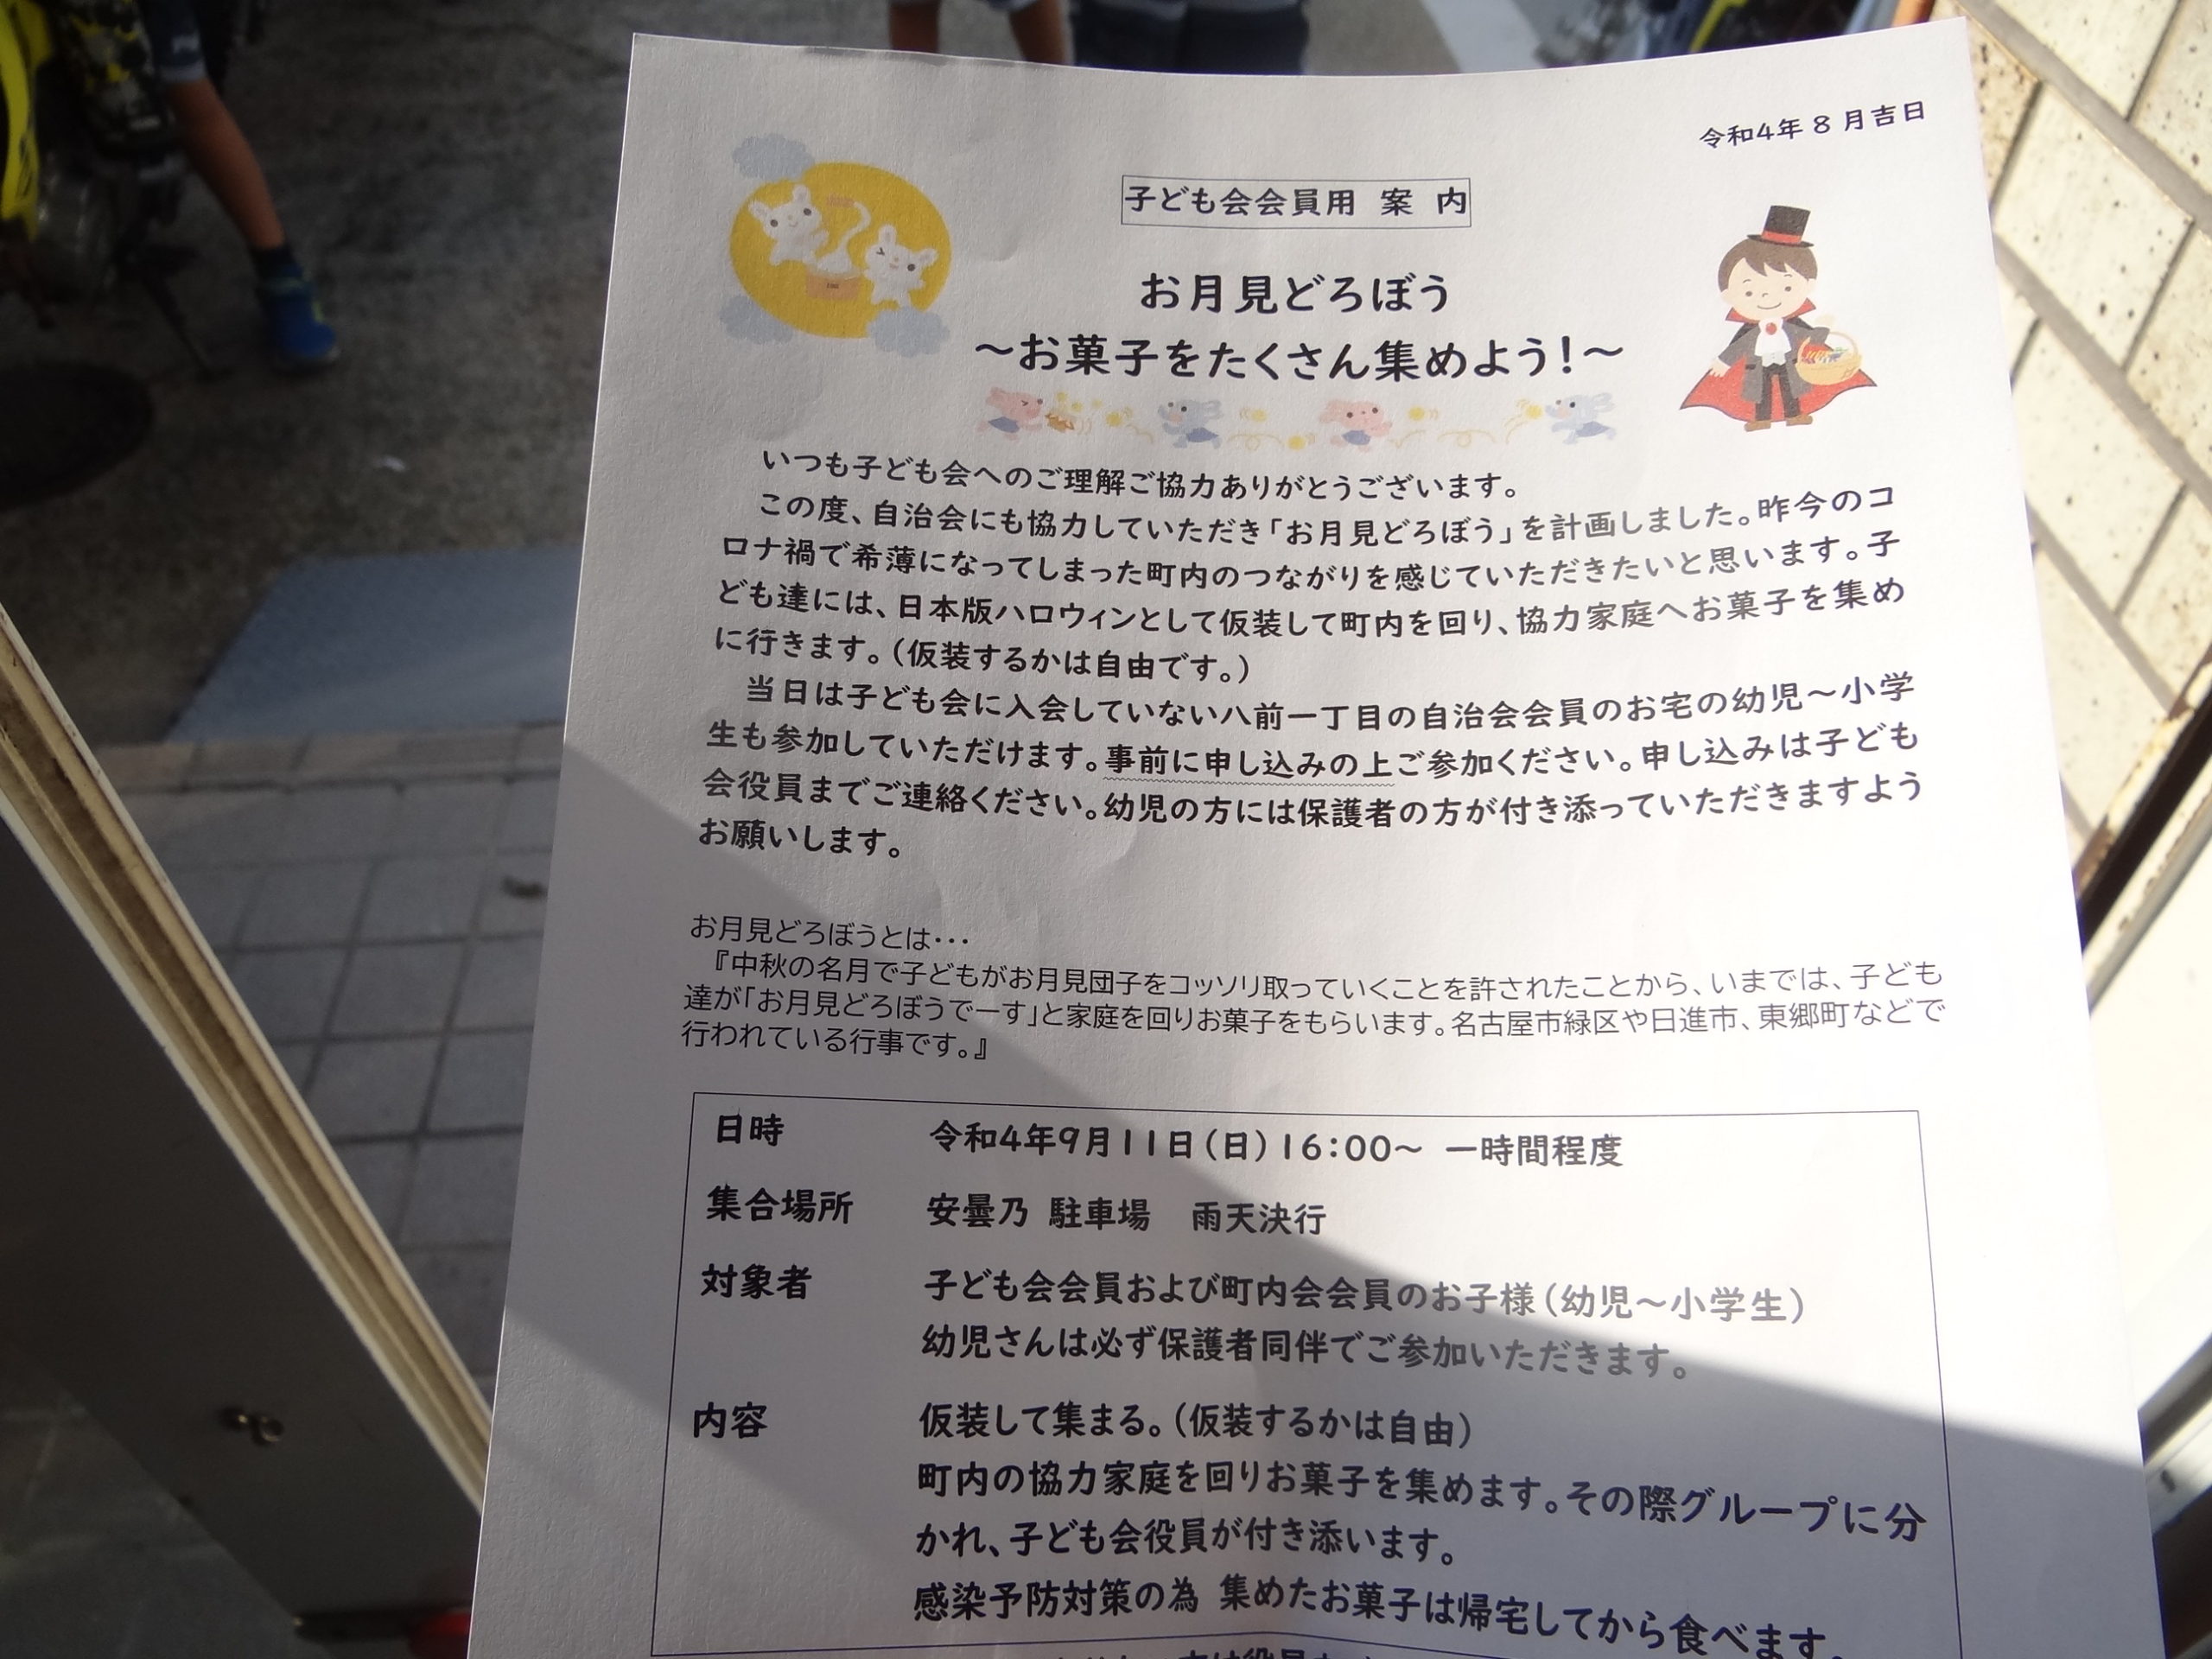 令和4年8月吉日
子ども会会員用 案 内
お月見どろぼう
～お菓子をたくさん集めよう！～
いつも子ども会へのご理解ご協力ありがとうございます。
この度、自治会にも協力していただき「お月見どろぼう」を計画しました。昨今のコ
ロナ禍で希薄になってしまった町内のつながりを感じていただきたいと思います。子
ども達には、日本版ハロウィンとして仮装して町内を回り、協力家庭へお菓子を集め
に行きます。（仮装するかは自由です。）
当日は子ども会に入会していない八前一丁目の自治会会員のお宅の幼児～小学
生も参加していただけます。事前に申し込みの上ご参加ください。申し込みは子ども
会役員までご連絡ください。幼児の方には保護者の方が付き添っていただきますよう
お願いします。
お月見どろぼうとは・・・
『中秋の名月で子どもがお月見団子をコッソリ取っていくことを許されたことから、いまでは、子ども
達が「お月見どろぼうでーす」と家庭を回りお菓子をもらいます。名古屋市緑区や日進市、東郷町などで
行われている行事です。』
日時 令和4年9月11日（日）16：00～ 一時間程度
集合場所 安曇乃 駐車場 雨天決行
対象者 子ども会会員および町内会会員のお子様（幼児～小学生）
幼児さんは必ず保護者同伴でご参加いただきます。
内容 仮装して集まる。（仮装するかは自由）
町内の協力家庭を回りお菓子を集めます。その際グループに分
かれ、子ども会役員が付き添います。
感染予防対策の為 集めたお菓子は帰宅してから食べます。